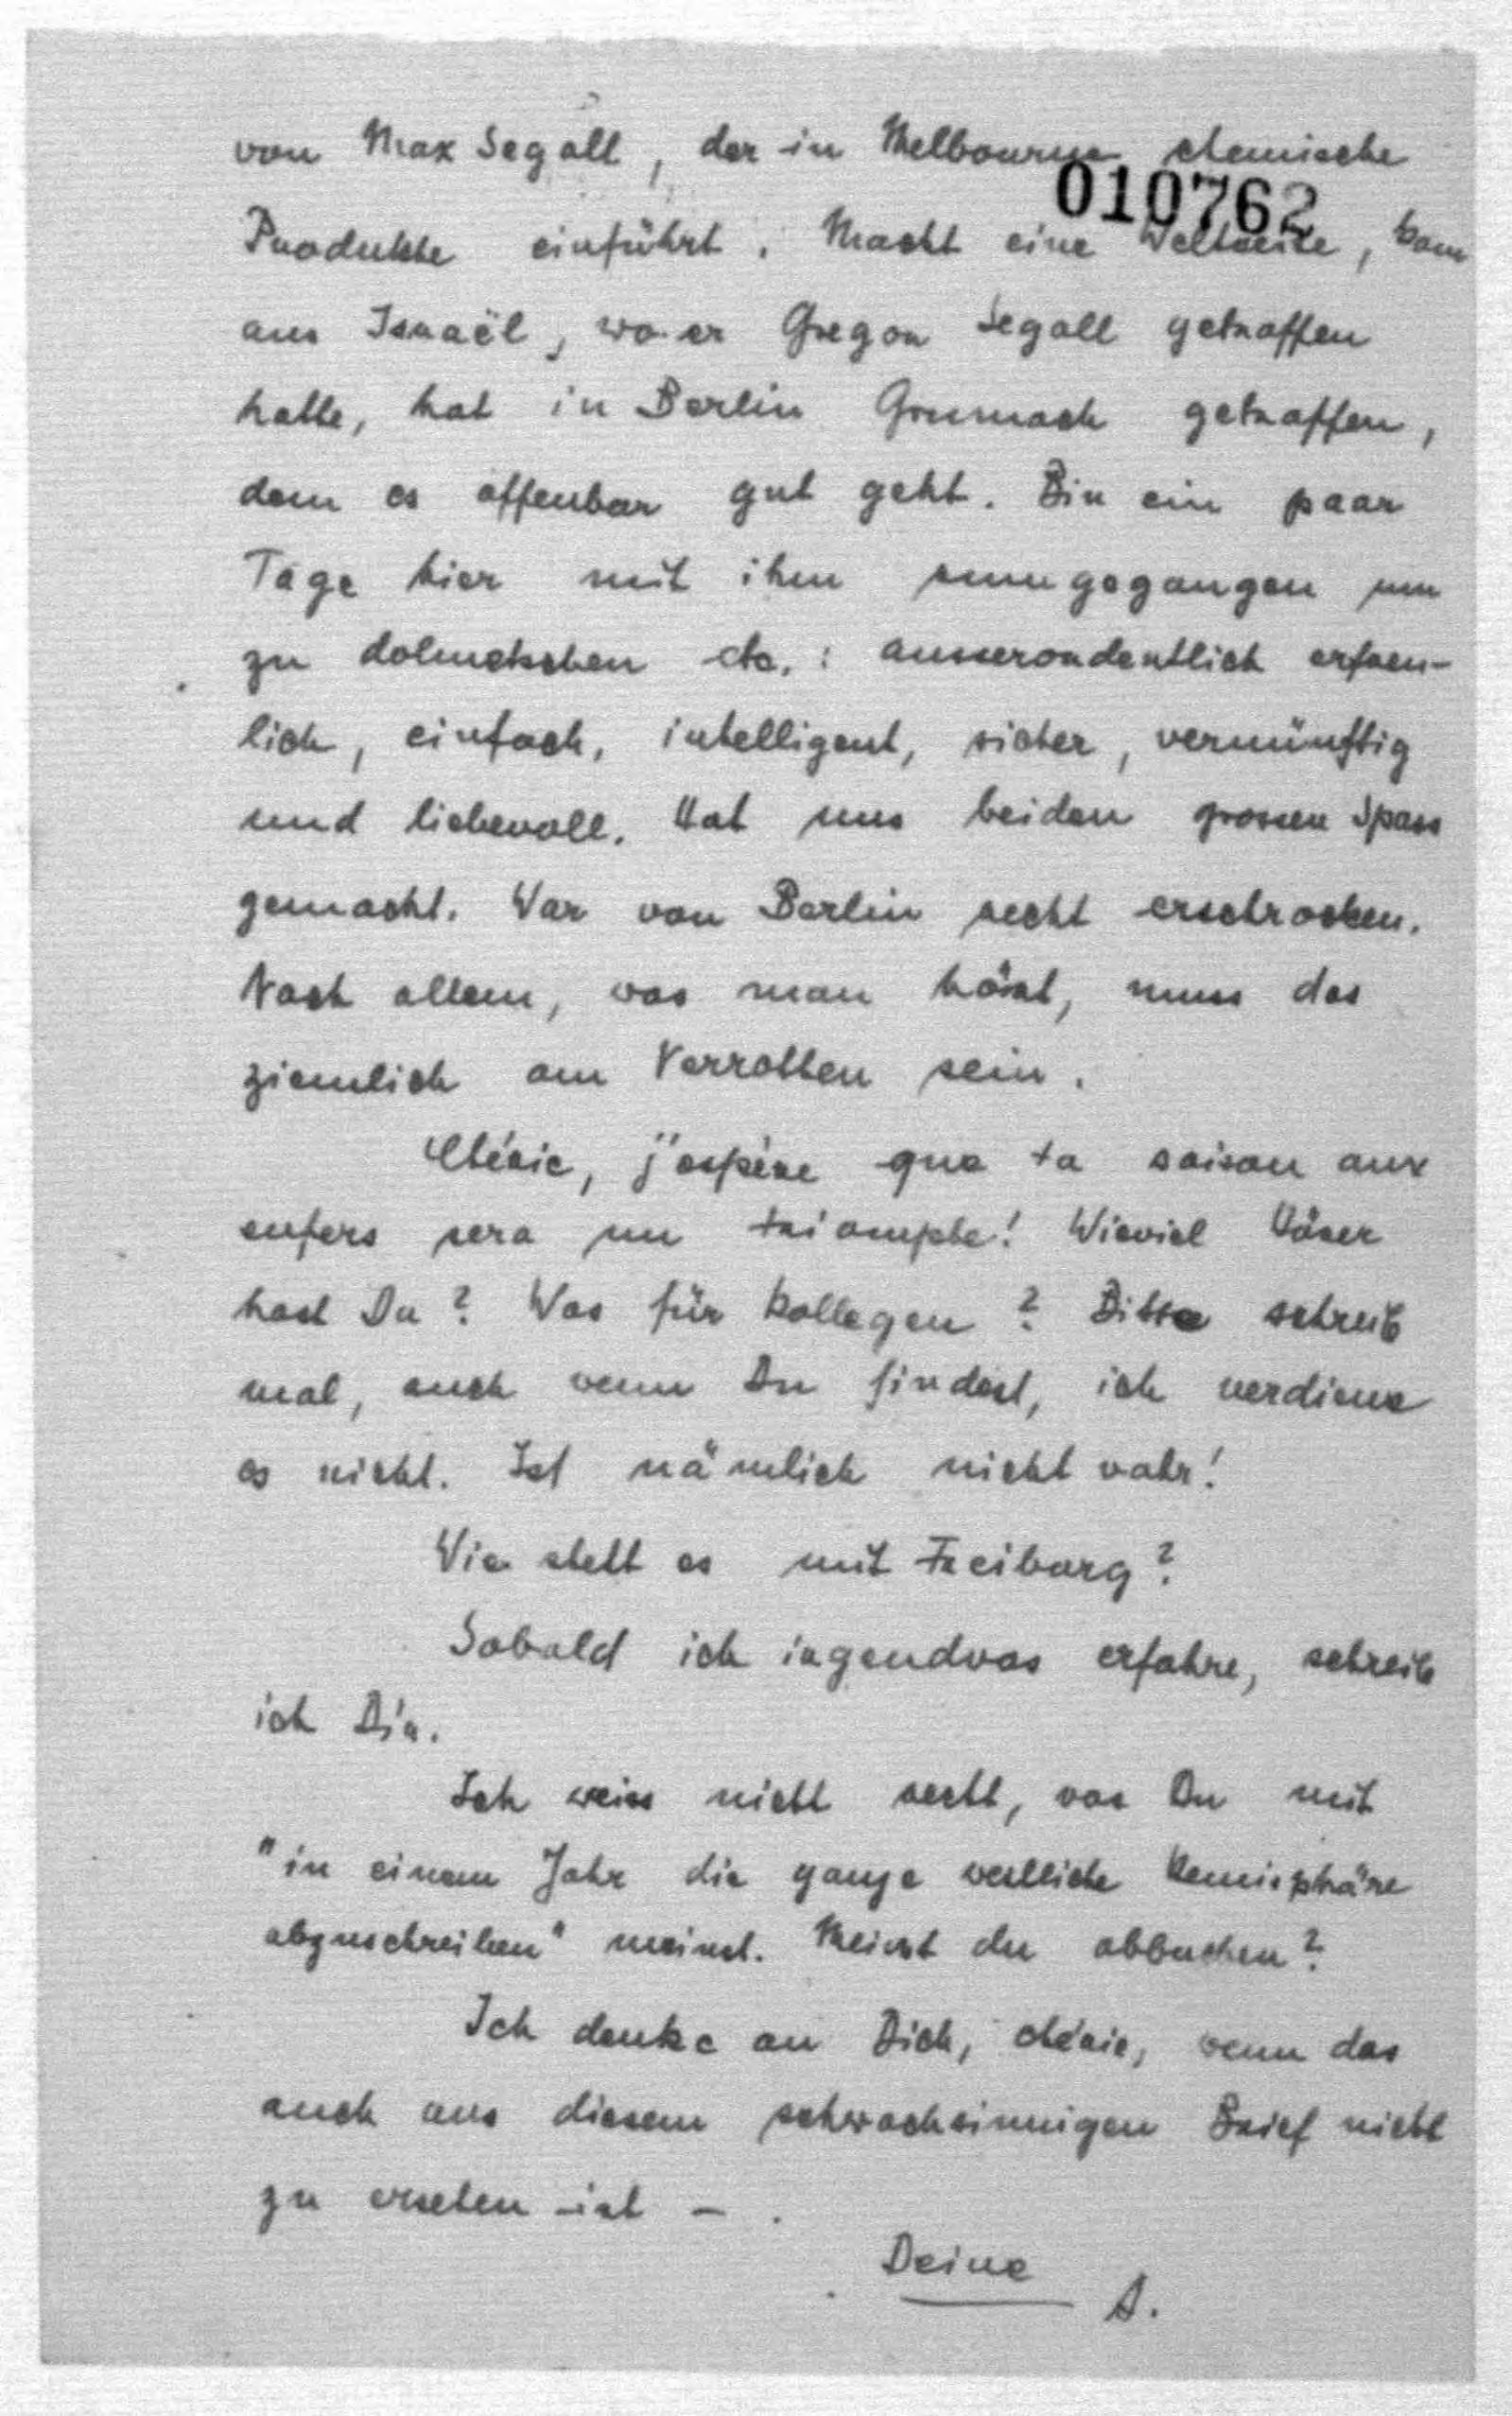 von Max Segall, der in Melbourne chemische
010762
Produkte einführt. Macht eine Weltreise, kam
aus Israël, wo er Gregor Segall getroffen
hatte, hat in Berlin Grumach getroffen,
dem es offenbar gut geht. Bin ein paar
Tage hier mit ihm rumgegangen um
zu dolmetschen etc.: ausserordentlich erfreu-
lich, einfach, intelligent, sicher, vernünftig
und liebevoll. Hat uns beiden grossen Spass
gemacht. War von Berlin recht erschrocken.
Nach allem, was man hört, muss das
ziemlich am Verrotten sein.
Chérie, j'espère que ta saison aux
enfers sera un triomphe! Wieviel Hörer
hast Du? Was für Kollegen? Bitte schreib
mal, auch wenn Du findest, ich verdiene
es nicht. Ist nämlich nicht wahr!
Wie steht es mit Freiburg?
Sobald ich irgendwas erfahre, schreib
ich Dir.
Ich weiss nicht recht, was Du mit
"in einem Jahr die ganze westliche Hemisphäre
abzuschreiben" meinst. Meinst du abbuchen?
Ich denke an Dich, chérie, wenn das
auch aus diesem schwachsinnigen Brief nicht
zu ersehen ist –.
Deine
A.